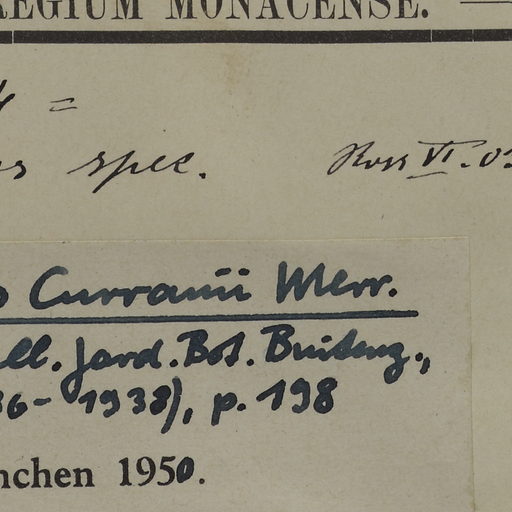 REGIUM MONACENSE. —
=
spec. Ross VI. 03
Curranii Merr.
ll. Jard. Bot. Buitenz.,
36-1938), p. 198
nchen 1950.